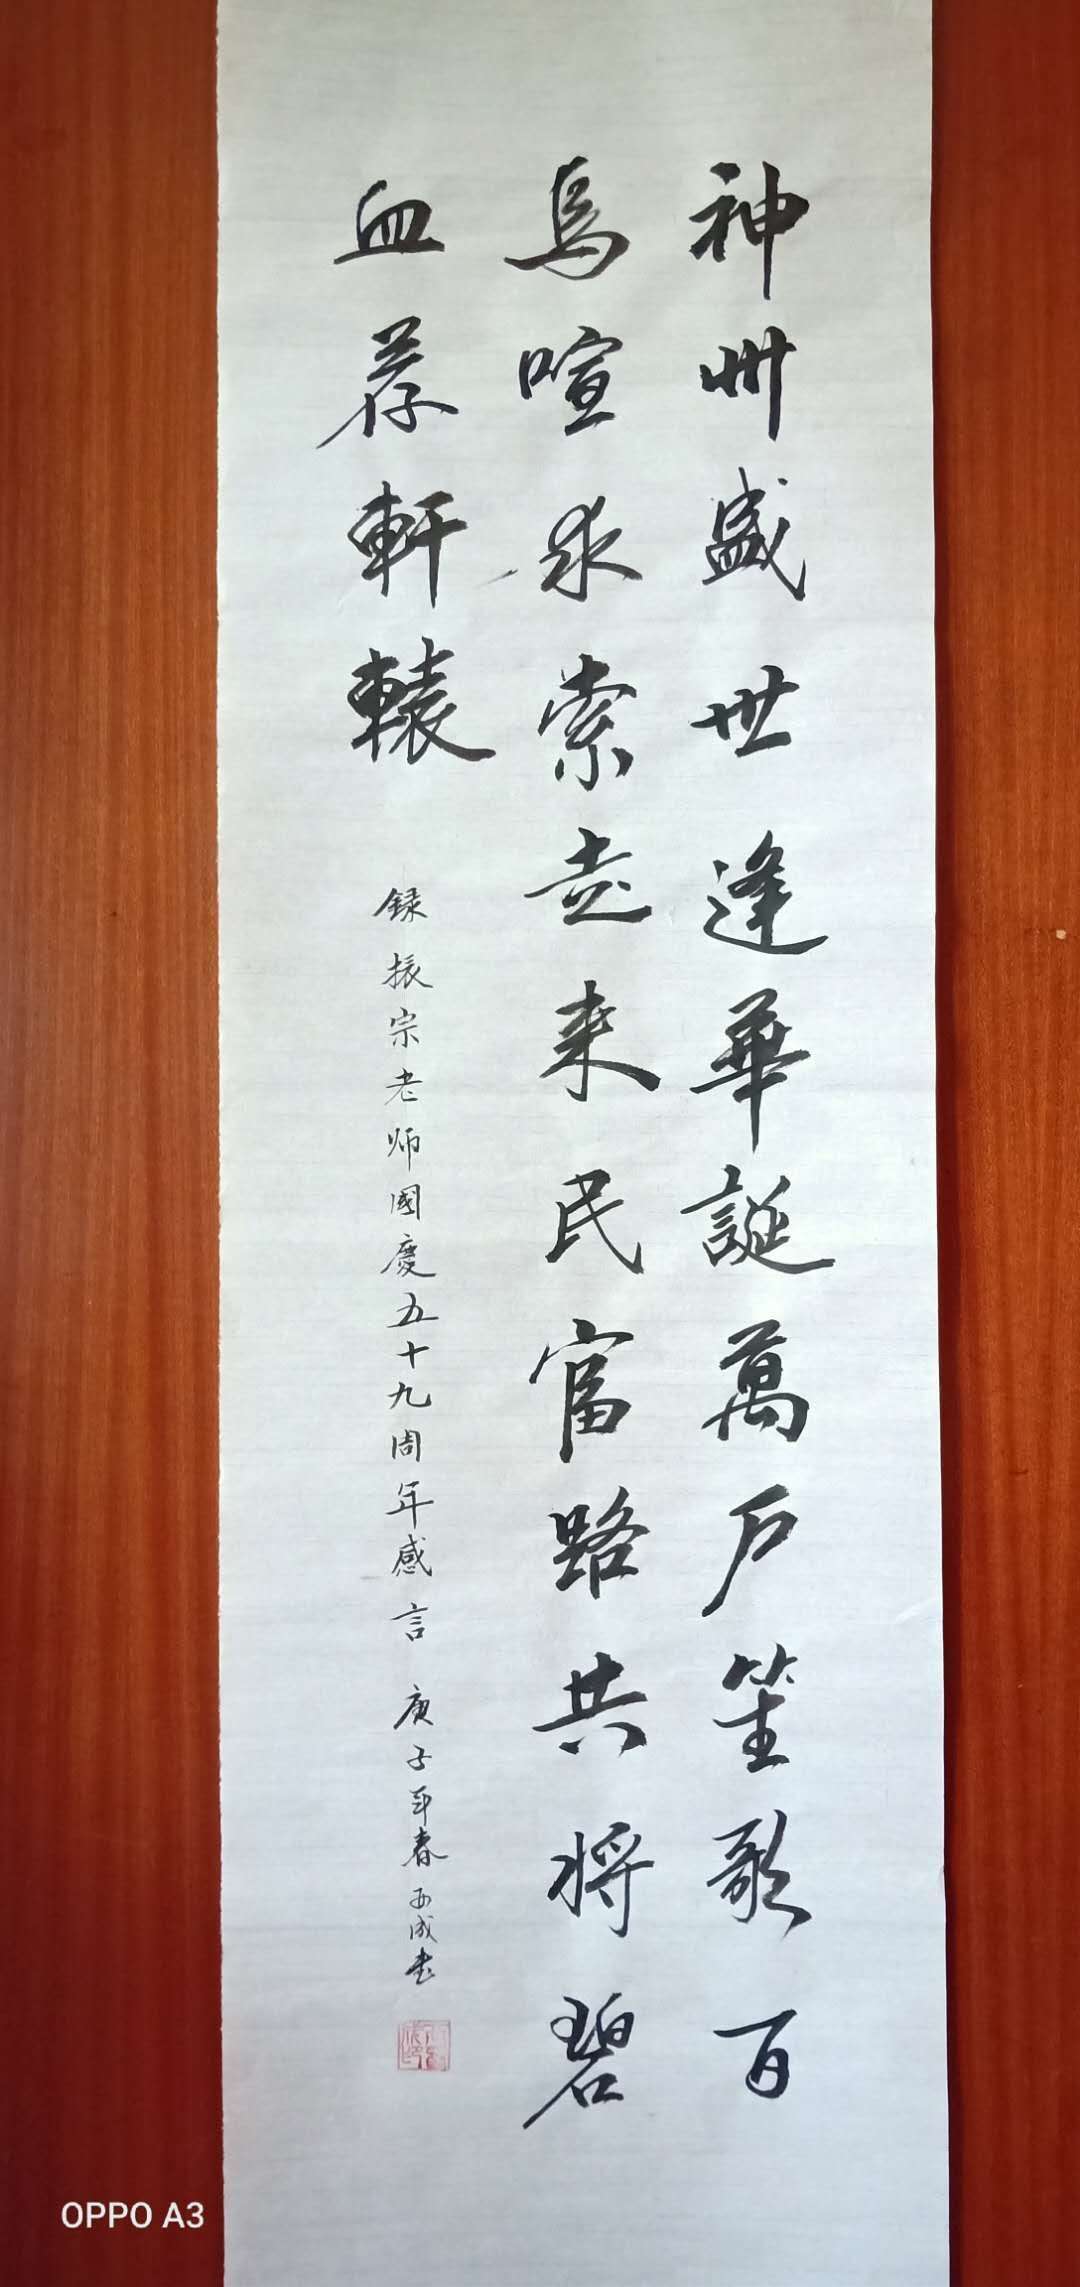 神州盛世逢華誕萬戶笙歌百
鳥喧求索走来民富路共将碧
血荐軒轅
録振宗老师國慶五十九周年感言 庚子年春西成书
OPPO A3